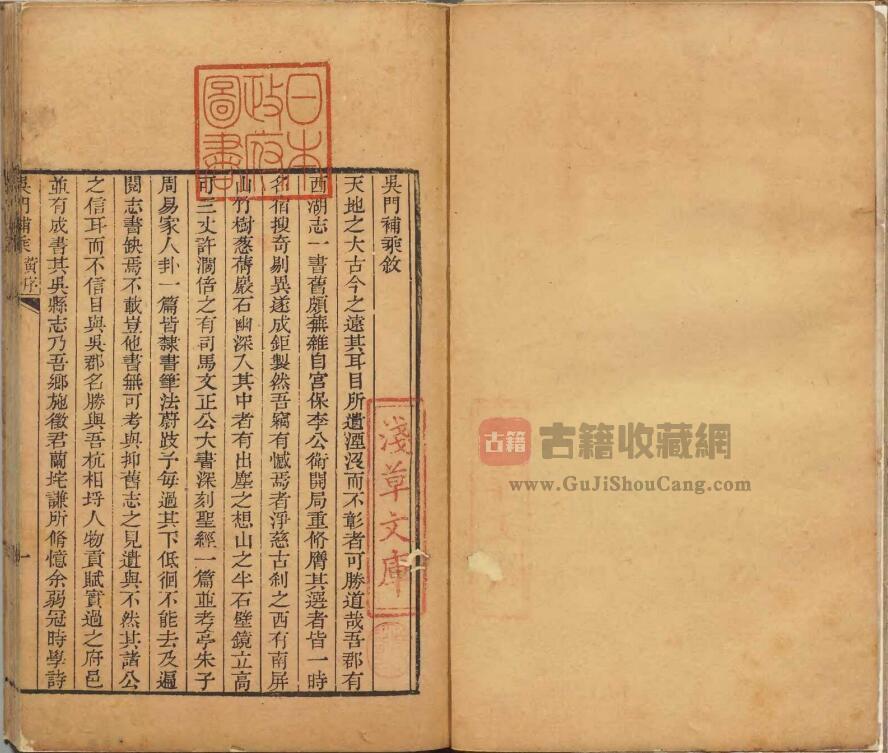 吳門補乘敘
天地之大古今之遠其耳目所遺湮沒而不彰者可勝道哉吾郡有
西湖志一書舊頗蕪雜自宮保李公衛開局重脩膺其選者皆一時
名宿搜奇剔異遂成鉅製然吾竊有憾焉者淨慈古刹之西有南屏
山竹樹蔥蒨巖石幽深入其中者有出塵之想山之半石壁鏡立高
可三丈許濶倍之有司馬文正公大書深刻聖經一篇並考亭朱子
周易家人卦一篇皆隸書筆法蔚跂予每過其下低徊不能去及遍
閱志書缺焉不載豈他書無可考與抑舊志之見遺與不然其諸公
之信耳而不信目與吳郡名勝與吾杭相埒人物貢賦實過之府邑
並有成書其吳縣志乃吾鄉施徵君蘭垞謙所脩憶余弱冠時學詩
吳門補乘 黃序
一
日本
政府
圖書
淺草文庫
古籍
古籍收藏網
www.GuJiShouCang.com